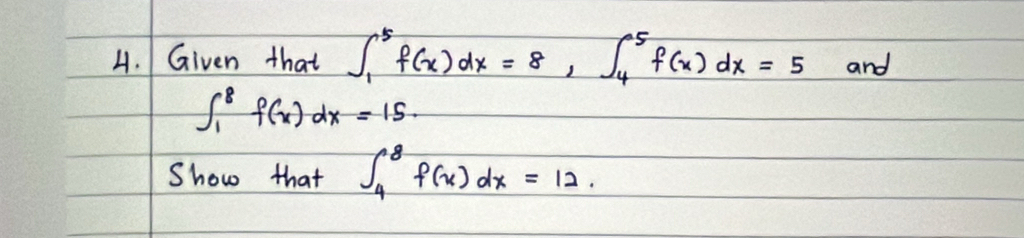 4. Given that ∫₁⁵ f(x) dx = 8 , ∫₄⁵ f(x) dx = 5 and
∫₁⁸ f(x) dx = 15.
Show that ∫₄⁸ f(x) dx = 12.